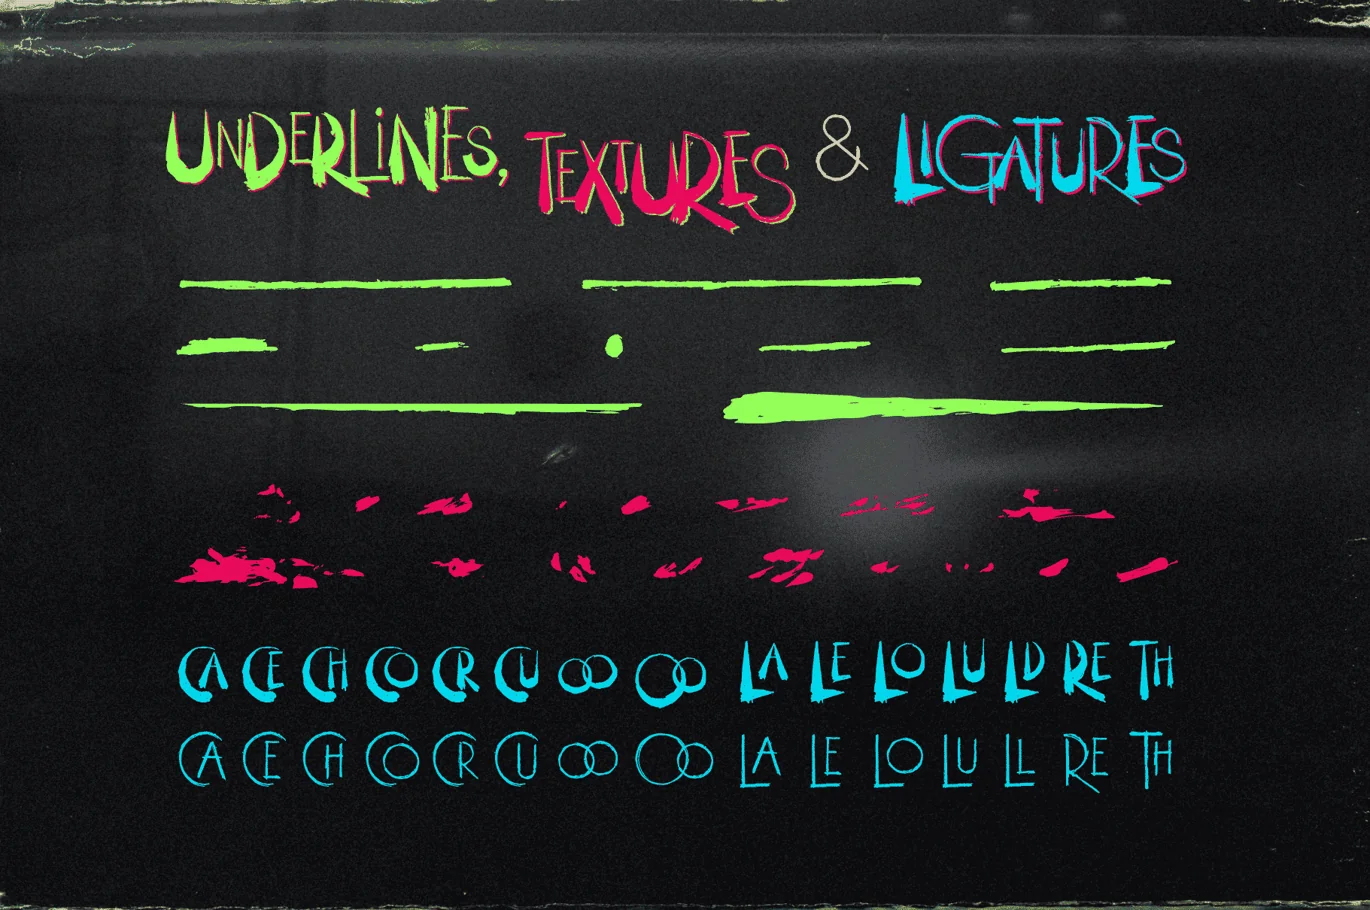 UNDERLiNES, TEXTURES & LIGATURES
CA CE CH CO CR CU OO OO LA LE LO LU LD RE TH
CA CE CH CO CR CU OO OO LA LE LO LU LL RE TH